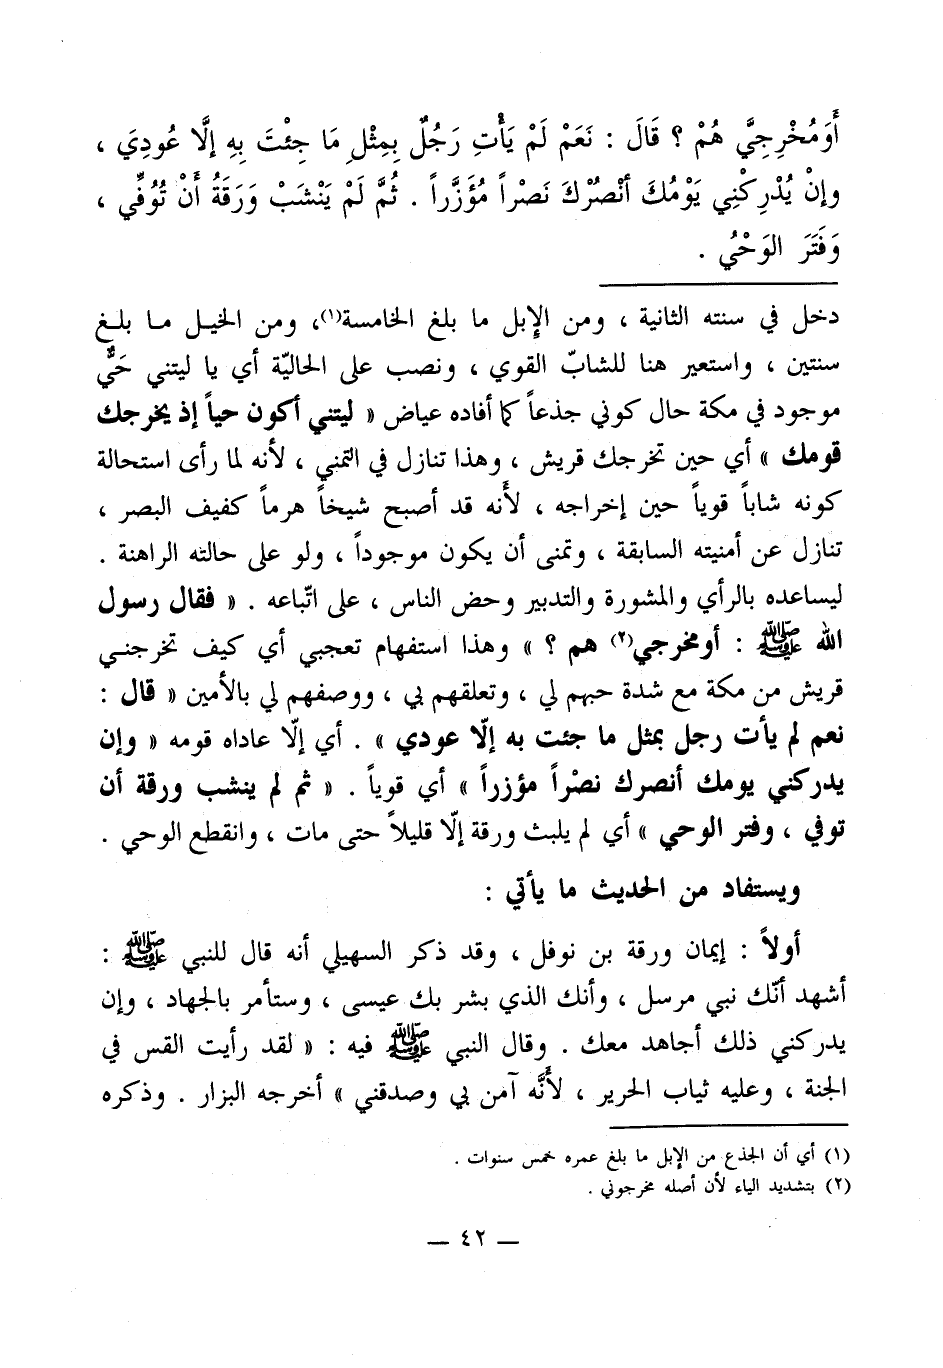 أَوَمُخْرِجِيَّ هُمْ ؟ قَالَ : نَعَمْ لَمْ يَأْتِ رَجُلٌ بِمِثْلِ مَا جِئْتَ بِهِ إلَّا عُودِيَ ،
وإنْ يُدْرِكْنِي يَوْمُكَ أنْصُرْكَ نَصْراً مُؤَزَّراً . ثُمَّ لَمْ يَنْشَبْ وَرَقَةُ أَنْ تُوُفِّي ،
وَفَتَرَ الوَحْيُ .
دخل في سنته الثانية ، ومن الإِبل ما بلغ الخامسة(١)، ومن الخيل ما بلغ
سنتين ، واستعير هنا للشابّ القوي ، ونصب على الحاليّة أي يا ليتني حَيٌّ
موجود في مكة حال كوني جذعاً كما أفاده عياض « ليتني أكون حياً إذ يخرجك
قومك » أي حين تخرجك قريش ، وهذا تنازل في التمني ، لأنه لما رأى استحالة
كونه شاباً قوياً حين إخراجه ، لأَنه قد أصبح شيخاً هرماً كفيف البصر ،
تنازل عن أمنيته السابقة ، وتمنى أن يكون موجوداً ، ولو على حالته الراهنة .
ليساعده بالرأي والمشورة والتدبير وحض الناس ، على اتّباعه . « فقال رسول
الله ﷺ : أومخرجي(٢) هم ؟ » وهذا استفهام تعجبي أي كيف تخرجني
قريش من مكة مع شدة حبهم لي ، وتعلقهم بي ، ووصفهم لي بالأمين « قال :
نعم لم يأت رجل بمثل ما جئت به إلّا عودي » . أي إلّا عاداه قومه « وإن
يدركني يومك أنصرك نصْراً مؤزراً » أي قوياً . « ثم لم ينشب ورقة أن
توفي ، وفتر الوحي » أي لم يلبث ورقة إلّا قليلاً حتى مات ، وانقطع الوحي .
ويستفاد من الحديث ما يأتي :
أولاً : إيمان ورقة بن نوفل ، وقد ذكر السهيلي أنه قال للنبي ﷺ :
أشهد أنّك نبي مرسل ، وأنك الذي بشر بك عيسى ، وستأمر بالجهاد ، وإن
يدركني ذلك أجاهد معك . وقال النبي ﷺ فيه : « لقد رأيت القس في
الجنة ، وعليه ثياب الحرير ، لأَنَّه آمن بي وصدقني » أخرجه البزار . وذكره
(١) أي أن الجذع من الإبل ما بلغ عمره خمس سنوات .
(٢) بتشديد الياء لأن أصله مخرجوني .
— ٤٢ —